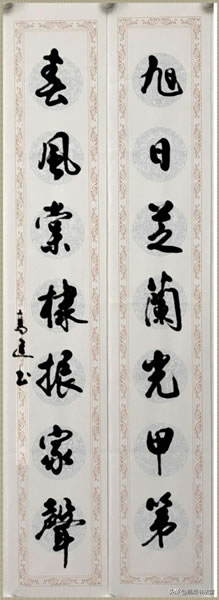 旭日芝蘭光甲第
春風棠棣振家聲
高進书